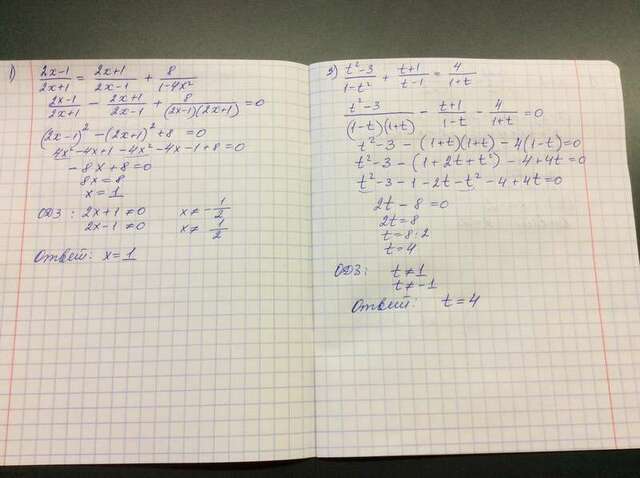 1) (2x-1)/(2x+1) = (2x+1)/(2x-1) + 8/(1-4x²)
(2x-1)/(2x+1) - (2x+1)/(2x-1) + 8/((2x-1)(2x+1)) = 0
(2x-1)² - (2x+1)² + 8 = 0
4x²-4x+1-4x²-4x-1+8=0
-8x+8=0
8x=8
x=1
ОДЗ: 2x+1≠0 x≠-1/2
2x-1≠0 x≠1/2
Ответ: x=1
3) (t²-3)/(1-t²) + (t+1)/(t-1) = 4/(1+t)
(t²-3)/((1-t)(1+t)) - (t+1)/(1-t) - 4/(1+t) = 0
t²-3-(1+t)(1+t)-4(1-t)=0
t²-3-(1+2t+t²)-4+4t=0
t²-3-1-2t-t²-4+4t=0
2t-8=0
2t=8
t=8:2
t=4
ОДЗ: t≠1
t≠-1
Ответ: t=4